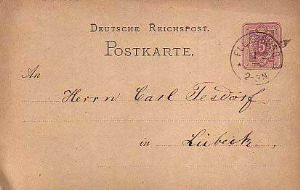 DEUTSCHE REICHSPOST.
POSTKARTE.
5
An
Herrn Carl Tesdorf
in Lübeck